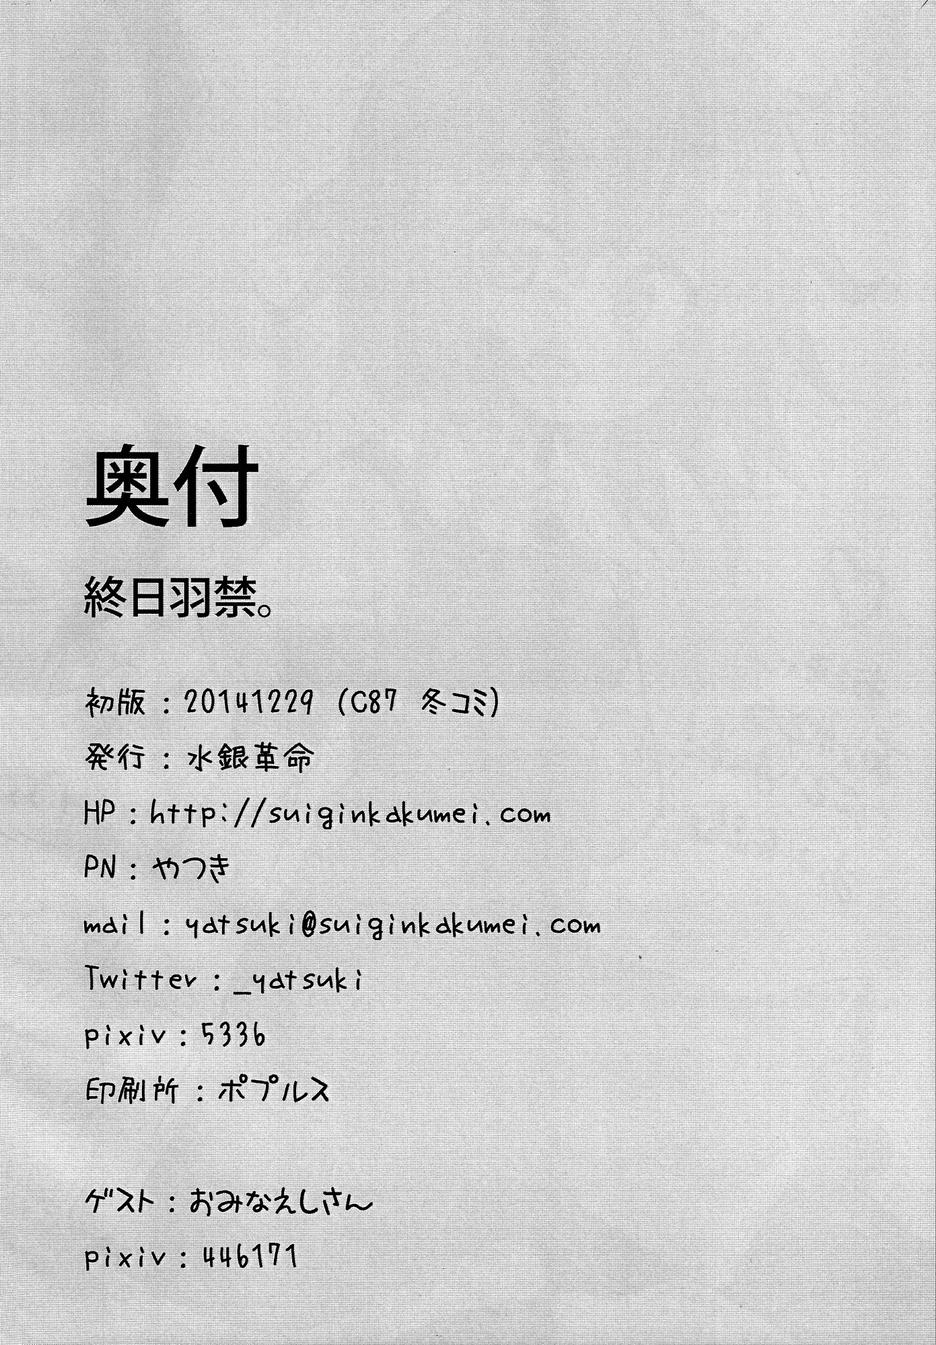 奥付
終日羽禁。
初版 : 20141229 (C87 冬コミ)
発行 : 水銀革命
HP : http://suiginkakumei.com
PN : やつき
mail : yatsuki@suiginkakumei.com
Twitter : _yatsuki
pixiv : 5336
印刷所 : ポプルス
ゲスト : おみなえしさん
pixiv : 446171